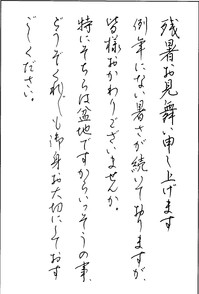 残暑お見舞い申し上げます
例年にない暑さが続いて居りますが、
皆様おかわりございませんか。
特にそちらは盆地ですからいっそうの事、
どうぞくれぐれも御身お大切にしておす
ごしください。